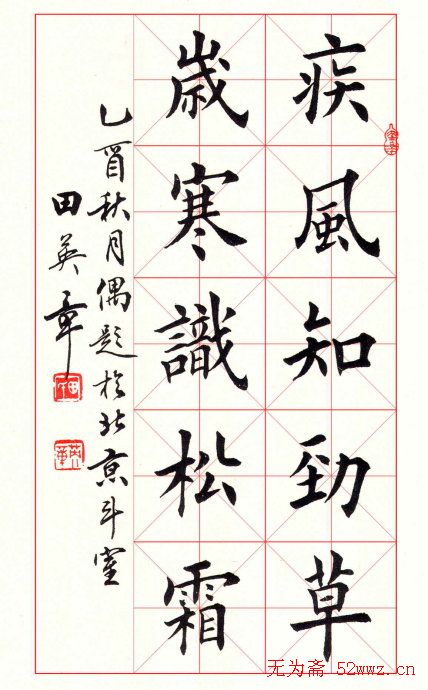 疾風知勁草
歲寒識松霜
乙酉秋月偶題於北京斗室
田英章
无为斋 52wwz.cn